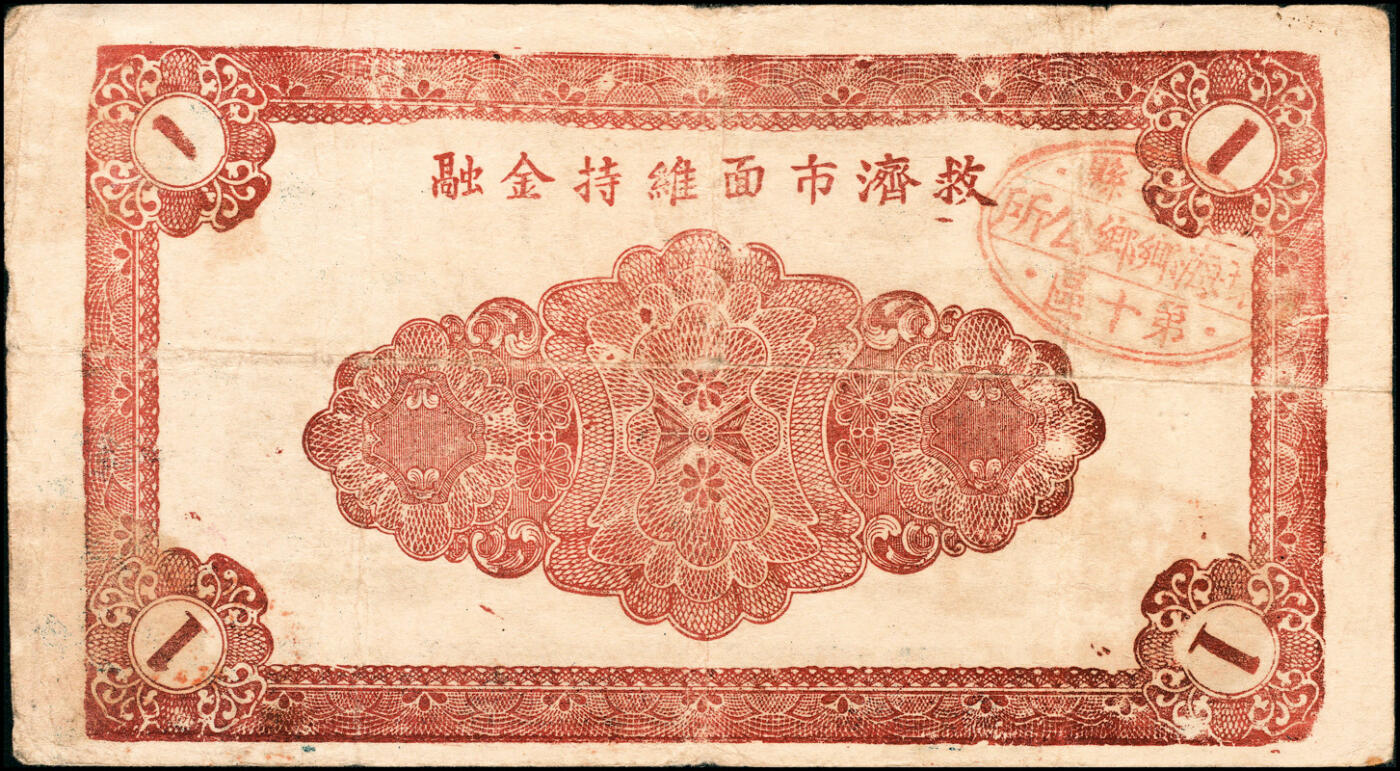 1 1
救濟市面維持金融
縣
海鄉鄉公所
第十區
1 1